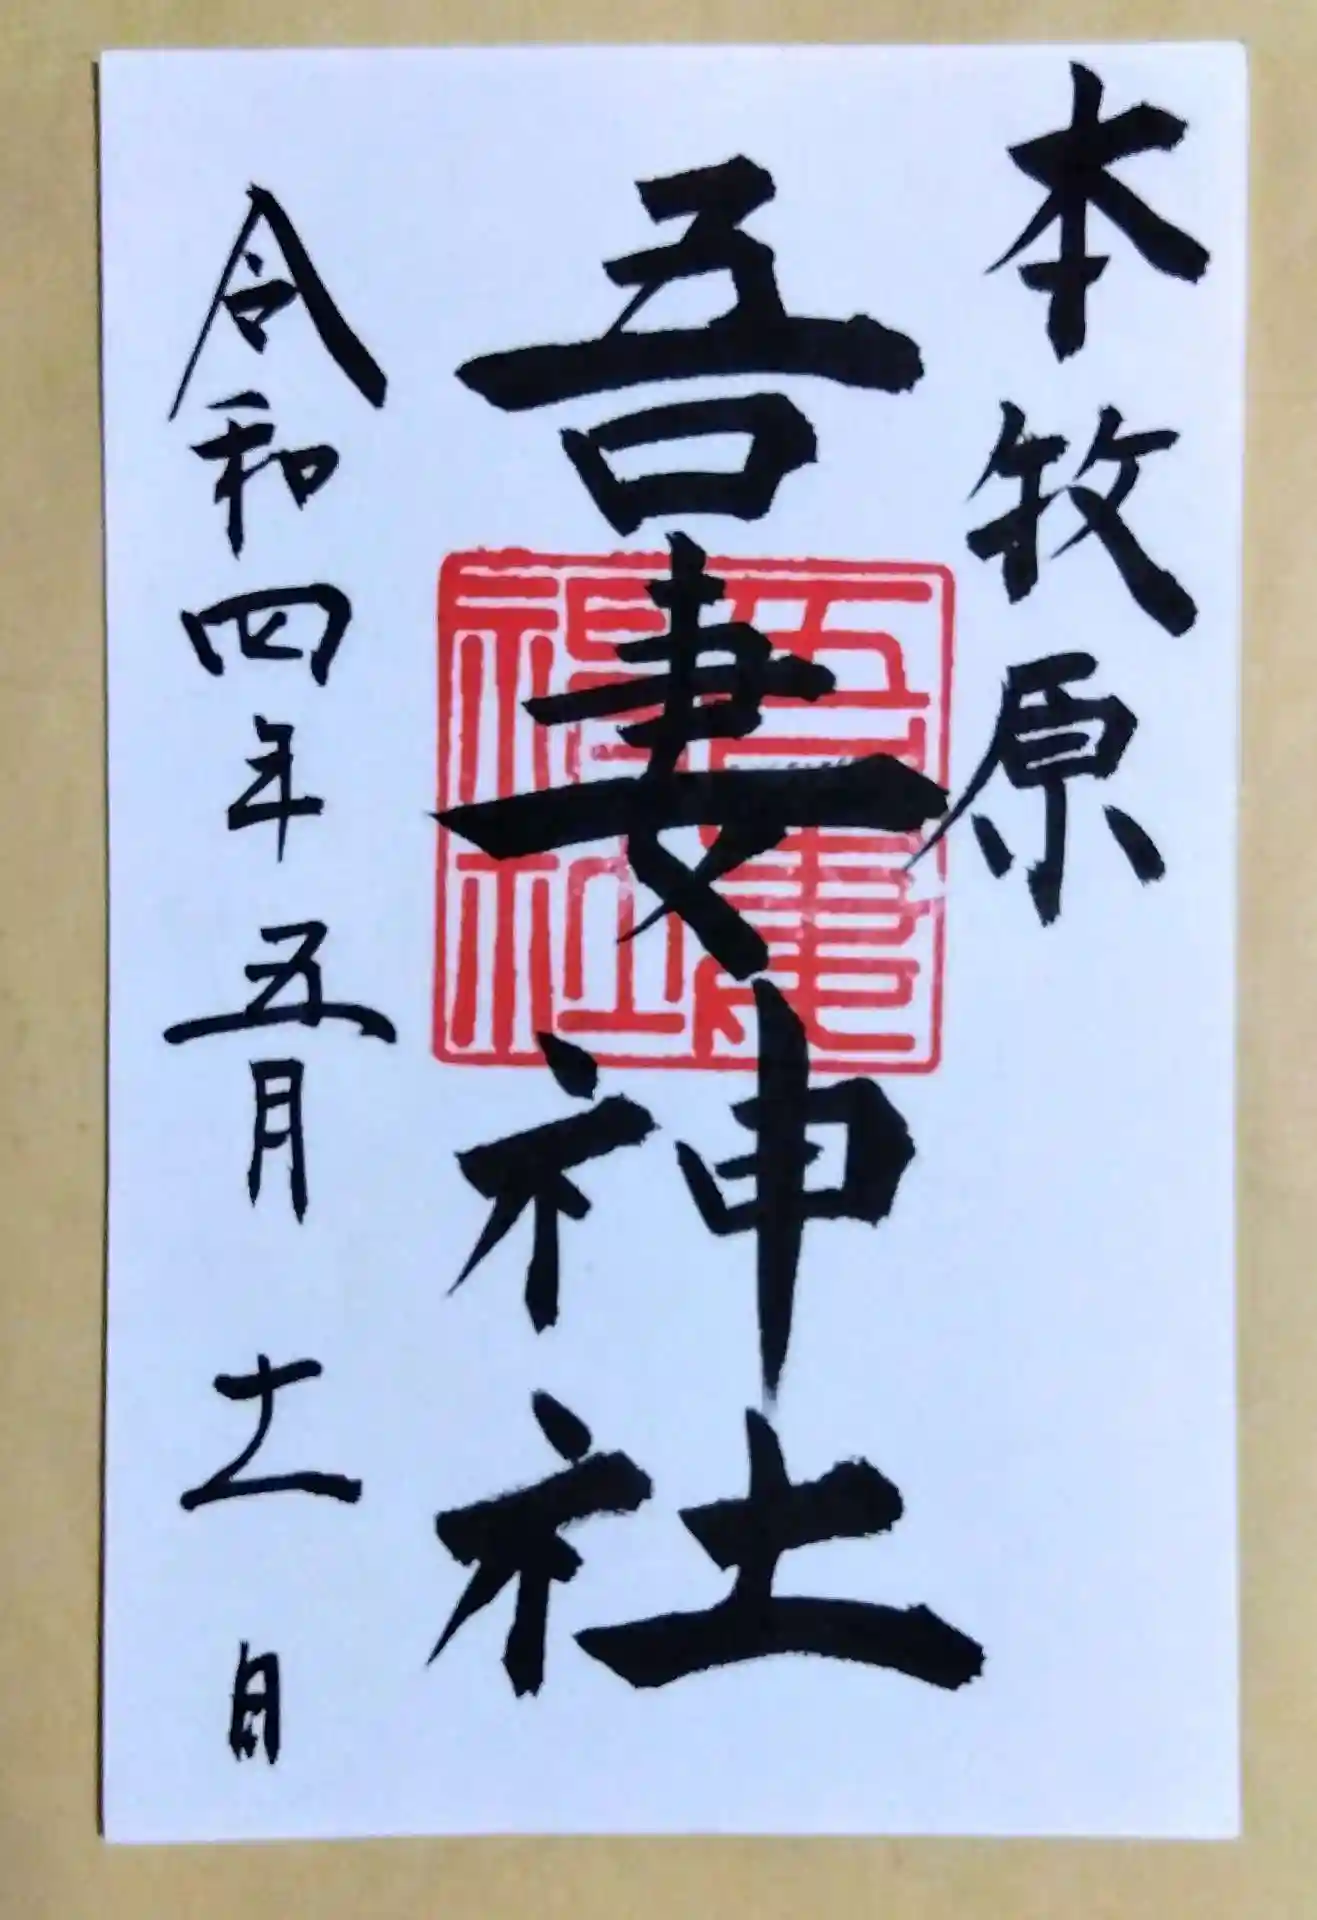 本牧原
吾妻神社
吾妻
神社
令和四年五月十一日